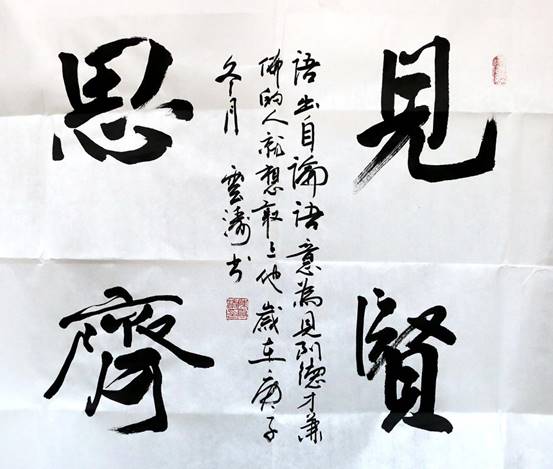 見賢
思齊
語出自論語意為見到德才兼
備的人就想敢上他歲在庚子
冬月 雲濤書